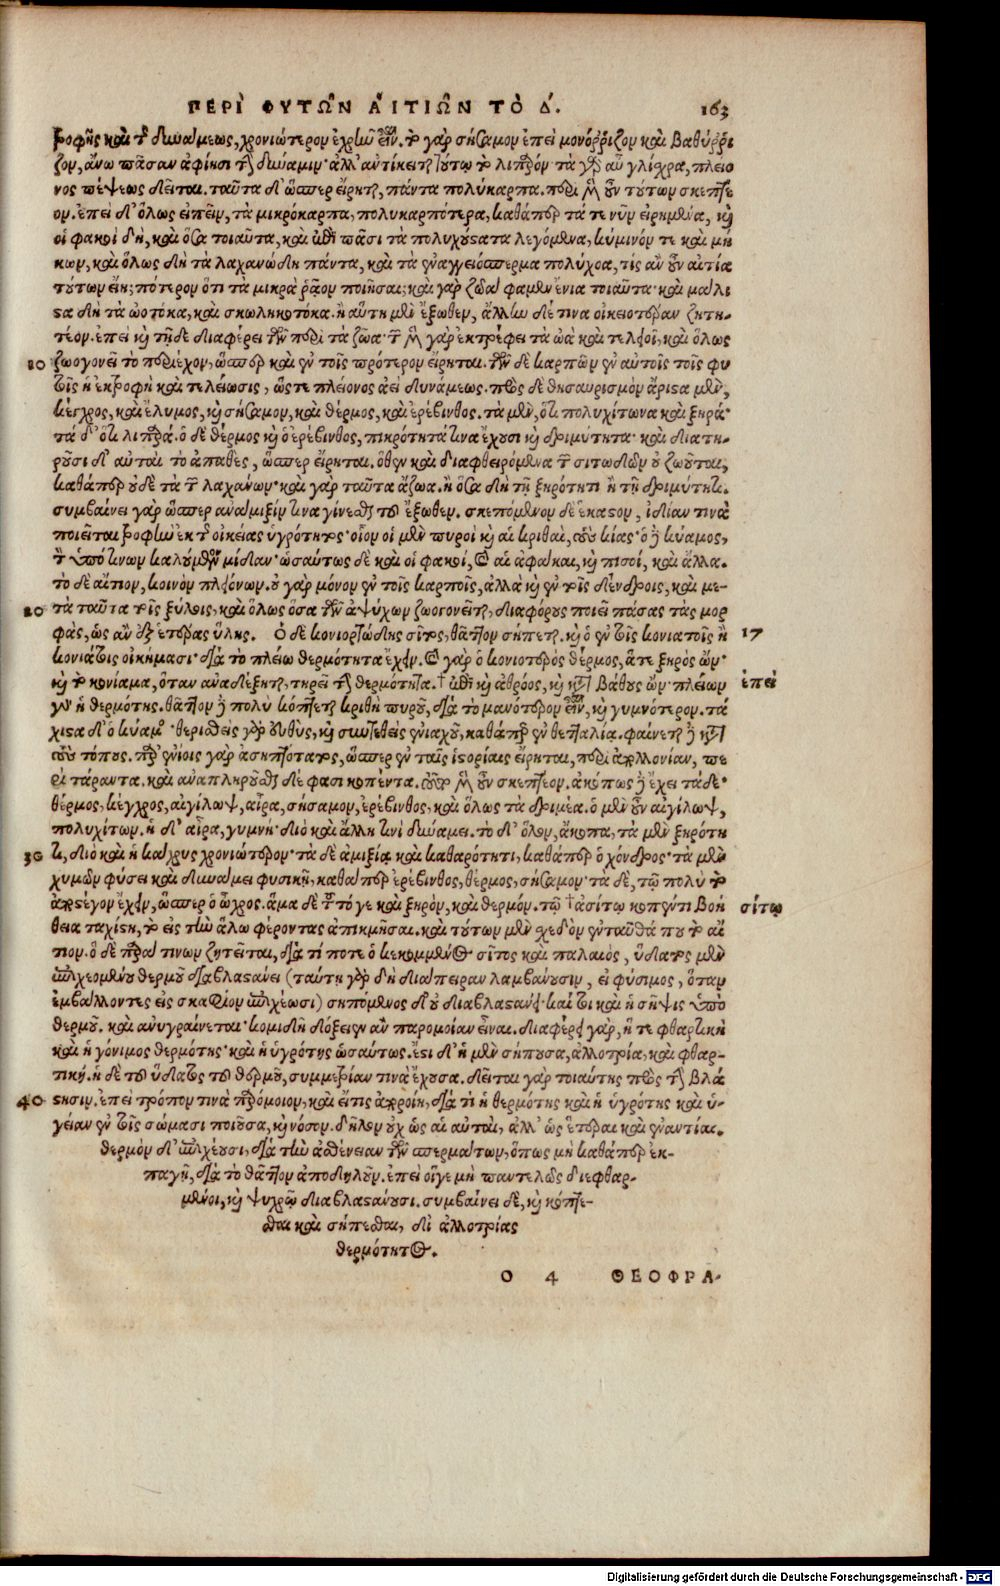 ΠΕΡῚ ΦΥΤΩ͂Ν ΑἸΤΙΩ͂Ν ΤῸ Δ΄. 163
τροφῆς καὶ τῆς δυνάμεως, χρονιώτερον ἐχρῆν εἶναι. τὸ γὰρ σήσαμον ἐπεὶ μονόρριζον καὶ βαθύρρι
ζον, ἄνω πᾶσαν ἀφίησι τὴν δύναμιν· ἀλλ' ἀντίκειται τούτῳ τὸ λιπαρόν. τὰ γὰρ αὖ γλίσχρα, πλείο
νος πέψεως δεῖται. ταῦτα δ' ὥσπερ εἴρηται, πάντα πολύκαρπα. περὶ μὲν οὖν τούτων σκεπτέ
ον. ἐπεὶ δ' ὅλως εἰπεῖν, τὰ μικρόκαρπα, πολυκαρπότερα, καθάπερ τά τε νῦν εἰρημένα, καὶ
οἱ φακοὶ δὴ, καὶ ὅσα τοιαῦτα, καὶ ἐπὶ πᾶσι τὰ πολυχούστατα λεγόμενα, κύμινόν τε καὶ μή
κων, καὶ ὅλως δὴ τὰ λαχανώδη πάντα, καὶ τὰ ἐναγγειόσπερμα πολύχοα, τίς ἂν οὖν αἰτία
τούτων εἴη; πότερον ὅτι τὰ μικρὰ ῥᾷον ποιῆσαι; καὶ γὰρ ζῶα φαμὲν ἔνια τοιαῦτα· καὶ μάλι
στα δὴ τὰ ὠοτόκα, καὶ σκωληκοτόκα. ἢ αὕτη μὲν ἔξωθεν, ἄλλην δέ τινα οἰκειοτέραν ζητη-
τέον. ἐπεὶ καὶ τῇδε διαφέρει τῶν περὶ τὰ ζῶα· τῶν μὲν γὰρ ἐκτρέφει τὰ ὠὰ καὶ τελεοῖ, καὶ ὅλως
10 ζωογονεῖ τὸ περιέχον, ὥσπερ καὶ ἐν τοῖς πρότερον εἴρηται. τῶν δὲ καρπῶν ἐν αὐτοῖς τοῖς φυ
τοῖς ἡ ἐκτροφὴ καὶ τελείωσις, ὥστε πλείονος ἀεὶ δυνάμεως. πρὸς δὲ θησαυρισμὸν ἄριστα μὲν,
κέγχρος, καὶ ἔλυμος, καὶ σήσαμον, καὶ θέρμος, καὶ ἐρέβινθος. τὰ μὲν, ὅτι πολυχίτωνα καὶ ξηρά·
τὰ δ' ὅτι λιπαρά. ὁ δὲ θέρμος καὶ ὁ ἐρέβινθος, πικρότητά τινα ἔχουσι καὶ δριμύτητα· καὶ διατη-
ροῦσι δ' αὗται τὸ ἀπαθὲς, ὥσπερ εἴρηται. ὅθεν καὶ διαφθειρόμενα τῶν σιτωδῶν οὐ ζωοῦται,
καθάπερ οὐδὲ τὰ τῶν λαχάνων· καὶ γὰρ ταῦτα ἄζωα. ἢ ὅσα δὴ τῇ ξηρότητι ἢ τῇ δριμύτητι.
συμβαίνει γὰρ ὥσπερ ἀνάμιξίν τινα γίνεσθαι τοῦ ἔξωθεν. σκεπόμενον δὲ ἕκαστον, ἰδίαν τινὰ
ποιεῖται τροφὴν ἐκ τῆς οἰκείας ὑγρότητος· οἷον οἱ μὲν πυροὶ καὶ αἱ κριθαὶ, τοὺς κίας· ὁ δὲ κύαμος,
τὸν ὑπό τινων καλούμενον μίδαν· ὡσαύτως δὲ καὶ οἱ φακοί, καὶ αἱ ἀφάκαι, καὶ πισοί, καὶ ἄλλα.
τὸ δὲ αἴτιον, κοινὸν πλειόνων. οὐ γὰρ μόνον ἐν τοῖς καρποῖς, ἀλλὰ καὶ ἐν τοῖς δένδροις, καὶ με-
20 τὰ ταῦτα τοῖς ξύλοις, καὶ ὅλως ὅσα τῶν ἀψύχων ζωογονεῖται, διαφόρους ποιεῖ πάσας τὰς μορ
φὰς, ὡς ἂν ἐξ ἑτέρας ὕλης. Ὁ δὲ κονιορτώδης σῖτος, θᾶττον σήπεται. καὶ ὁ ἐν τοῖς κονιατοῖς ἢ 17
κονιάτοις οἰκήμασι· διὰ τὸ πλείω θερμότητα ἔχειν. καὶ γὰρ ὁ κονιορτὸς θερμὸς, ἅτε ξηρὸς ὤν·
καὶ τὸ κονίαμα, ὅταν ἀναδέξηται, τηρεῖ τὴν θερμότητα. † ἐπὶ καὶ ἀθρόος, καὶ κατὰ βάθους ὢν· πλείων ἐπεὶ
γὰρ ἡ θερμότης. θᾶττον δὲ πολὺ κόπτεται κριθὴ πυροῦ, διὰ τὸ μανότερον εἶναι, καὶ γυμνότερον. τά
χιστα δ' ὁ κύαμος· θερισθεὶς γὰρ εὐθὺς, καὶ συντεθεὶς ἐνιαχοῦ, καθάπερ ἐν θετταλία. φαίνεται δὲ κατὰ
τοὺς τόπους. παρ' ἐνίοις γὰρ ἀσηπτότατος, ὥσπερ ἐν ταῖς ἱστορίαις εἴρηται, περὶ ἀπολλωνίαν, πε
ρὶ τάραντα. καὶ ἀναπληροῦσθαι δέ φασι κοπέντα. ὑπὲρ μὲν οὖν σκεπτέον. ἀκόπως δὲ ἔχει τάδε·
θέρμος, κέγχρος, αἰγίλωψ, αἶρα, σήσαμον, ἐρέβινθος, καὶ ὅλως τὰ δριμέα. ὁ μὲν οὖν αἰγίλωψ,
πολυχίτων. ἡ δ' αἶρα, γυμνή· διὸ καὶ ἄλλη τινὶ δυνάμει. τὸ δ' ὅλον, ἄκοπα, τὰ μὲν ξηρότη
30 τι, διὸ καὶ ἡ κάχρυς χρονιώτερον· τὰ δὲ ἀμιξίᾳ καὶ καθαρότητι, καθάπερ ὁ χόνδρος· τὰ μὲν
χυμῶν φύσει καὶ δυνάμει φυσικῇ, καθάπερ ἐρέβινθος, θέρμος, σήσαμον· τὰ δὲ, τῷ πολὺ τὸ
ἀπόστεγον ἔχειν, ὥσπερ ὁ ὦχρος. ἅμα δὲ τοῦτό γε καὶ ξηρὸν, καὶ θερμόν. τῷ † ἀσίτῳ κοπέντι βοή σίτῳ
θεια ταχίστη, τὸ εἰς τὴν ἅλω φέροντας ἀπικμῆσαι. καὶ τούτων μὲν σχεδὸν ἐνταῦθά που τὸ αἴ
τιον. ὁ δὲ παρά τινων ζητεῖται, διὰ τί ποτε ὁ κεκομμένος σῖτος καὶ παλαιὸς, ὕδατος μὲν
ἐπιχεομένου θερμοῦ διαβλαστάνει (ταύτῃ γὰρ δὴ διάπειραν λαμβάνουσιν, εἰ φύσιμος, ὅταν
ἐμβάλλοντες εἰς σκαφίον ἐπιχέωσι) σηπόμενος δ' οὐ διαβλαστάνει· καίτοι καὶ ἡ σῆψις ὑπὸ
θερμοῦ. καὶ ἀνυγραίνεται· κομιδῆ δόξειεν ἂν παρομοίαν εἶναι. διαφέρει γὰρ, ἥ τε φθαρτικὴ
καὶ ἡ γόνιμος θερμότης· καὶ ἡ ὑγρότης ὡσαύτως. ἔστι δ' ἡ μὲν σήπουσα, ἀλλοτρία, καὶ φθαρ-
τική. ἡ δὲ τοῦ ὕδατος τοῦ θερμοῦ, συμμετρίαν τινὰ ἔχουσα. δεῖται γὰρ τοιαύτης πρὸς τὴν βλά
40 στησιν. ἐπεὶ τρόπον τινὰ παρόμοιον, καὶ εἴ τις ἀποροίη, διὰ τί ἡ θερμότης καὶ ἡ ὑγρότης καὶ ὑ-
γείαν ἐν τοῖς σώμασι ποιοῦσα, καὶ νόσον. δῆλον οὐχ ὡς αἱ αὐταὶ, ἀλλ' ὡς ἕτεραι καὶ ἐναντίαι.
θερμὸν δ' ἐπιχέουσι, διὰ τὴν ἀσθένειαν τῶν σπερμάτων, ὅπως μὴ καθάπερ ἐκ-
παγῇ, διὰ τὸ θᾶττον ἀποδηλοῦν. ἐπεὶ οἵγε μὴ παντελῶς διεφθαρ-
μένοι, καὶ ψυχρῷ διαβλαστάνουσι. συμβαίνει δὲ, καὶ κόπτε-
σθαι καὶ σήπεσθαι, δι' ἀλλοτρίας
θερμότητος.
O 4 ΘΕΟΦΡΑ-
Digitalisierung gefördert durch die Deutsche Forschungsgemeinschaft - DFG